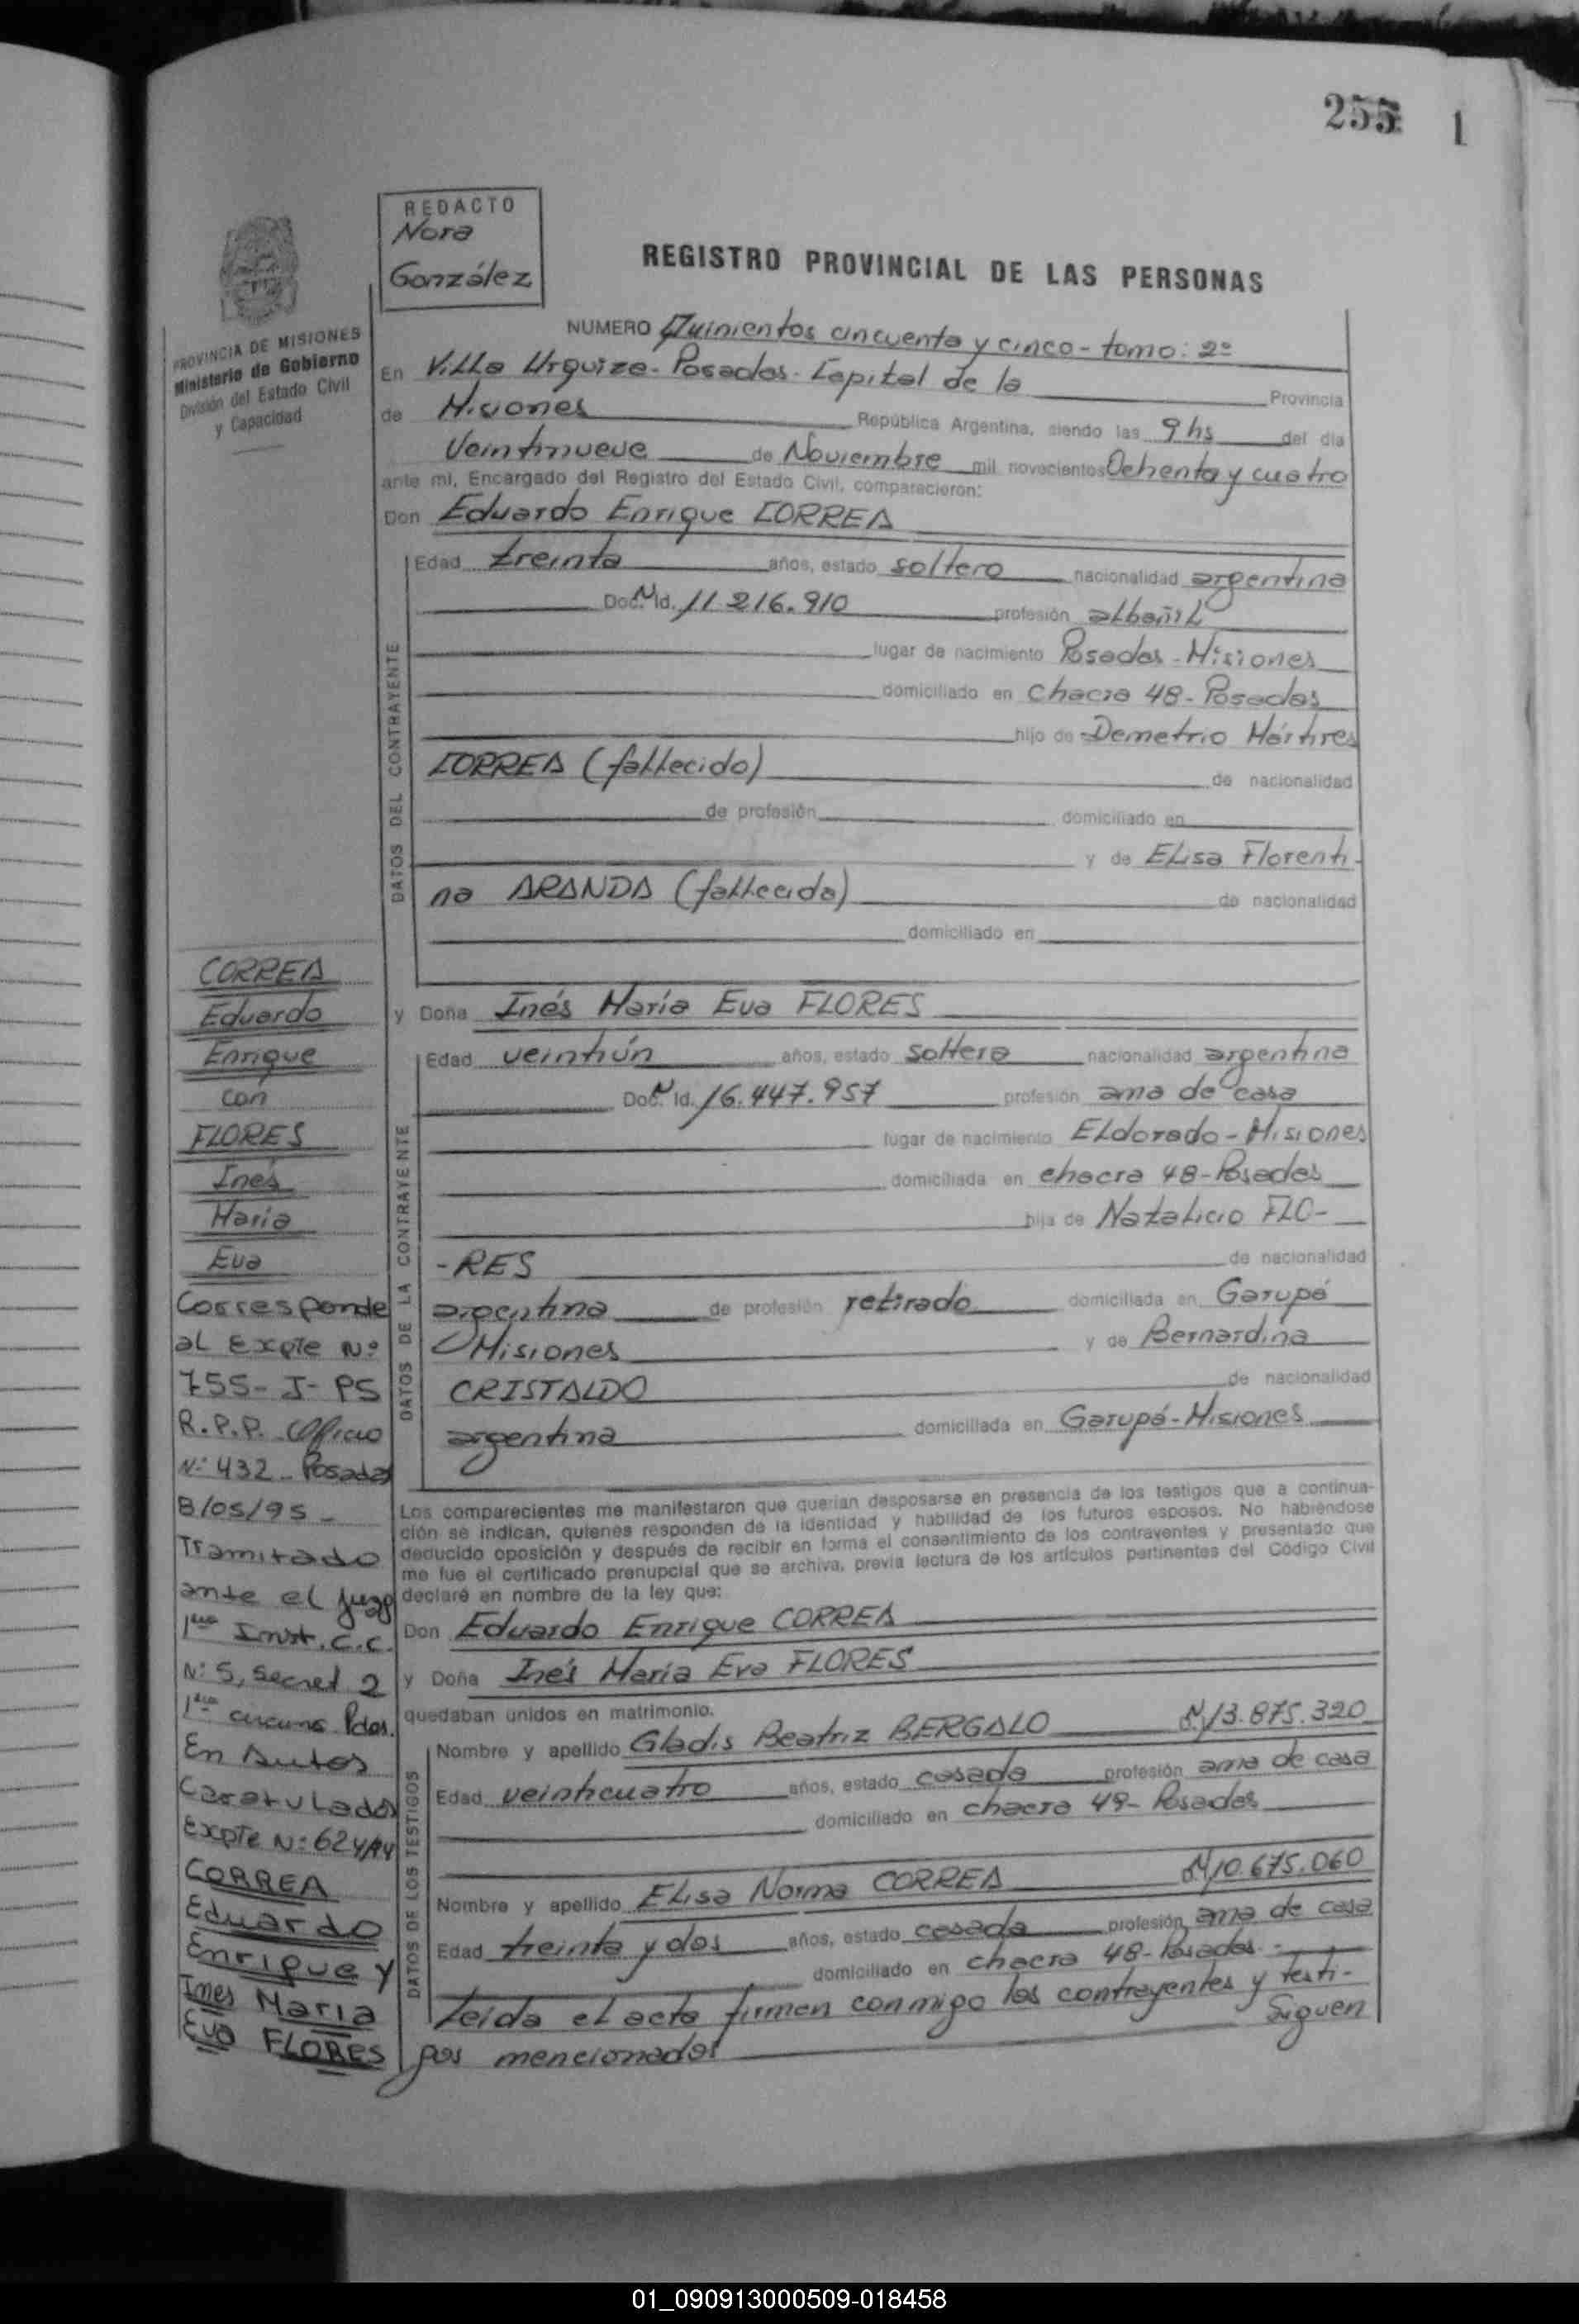 255 1
REDACTO
Nora
González
REGISTRO PROVINCIAL DE LAS PERSONAS
PROVINCIA DE MISIONES
Ministerio de Gobierno
División del Estado Civil
y Capacidad
NUMERO Quinientos cincuenta y cinco - tomo: 2º
En Villa Urquiza - Posadas - Capital de la Provincia
de Misiones República Argentina, siendo las 9 hs del día
Veintinueve de Noviembre mil novecientos Ochenta y cuatro
ante mí, Encargado del Registro del Estado Civil, comparecieron:
Don Eduardo Enrique CORREA
DATOS DEL CONTRAYENTE
Edad treinta años, estado soltero nacionalidad argentina
Doc. Nº Id. 11.216.910 profesión albañil
lugar de nacimiento Posadas - Misiones
domiciliado en Chacra 48 - Posadas
hijo de Demetrio Mártires
CORREA (fallecido) de nacionalidad
de profesión domiciliado en
y de Elisa Florenti-
na ARANDA (fallecida) de nacionalidad
domiciliado en
y Doña Inés María Eva FLORES
DATOS DE LA CONTRAYENTE
Edad veintiún años, estado soltera nacionalidad argentina
Doc. Nº Id. 16.447.957 profesión ama de casa
lugar de nacimiento Eldorado - Misiones
domiciliada en chacra 48 - Posadas
hija de Natalicio FLO-
-RES de nacionalidad
argentina de profesión retirado domiciliada en Garupá
Misiones y de Bernardina
CRISTALDO de nacionalidad
argentina domiciliada en Garupá - Misiones
Los comparecientes me manifestaron que querían desposarse en presencia de los testigos que a continua-
ción se indican, quienes responden de la identidad y habilidad de los futuros esposos. No habiéndose
deducido oposición y después de recibir en forma el consentimiento de los contraventes y presentado que
me fue el certificado prenupcial que se archiva, previa lectura de los artículos pertinentes del Código Civil
declaré en nombre de la ley que:
Don Eduardo Enrique CORREA
y Doña Inés María Eva FLORES
quedaban unidos en matrimonio.
DATOS DE LOS TESTIGOS
Nombre y apellido Gladis Beatriz BERGALO Nº 13.875.320
Edad veinticuatro años, estado casada profesión ama de casa
domiciliado en chacra 49 - Posadas
Nombre y apellido Elisa Norma CORREA Nº 10.675.060
Edad treinta y dos años, estado casada profesión ama de casa
domiciliado en chacra 48 - Posadas -
Leída el acta firman conmigo los contrayentes y testi-
gos mencionados Siguen
CORREA
Eduardo
Enrique
con
FLORES
Inés
María
Eva
Corresponde
al Expte Nº
755 - J - PS
R.P.P. Oficio
Nº 432 - Posadas
8/05/95 -
Tramitado
ante el Juzg
1era Inst. C.C.
Nº 5, Secret 2
1era circuns Pdas.
En Autos
Caratulados
Expte Nº 624/94
CORREA
Eduardo
Enrique y
Ines Maria
Eva FLORES
01_090913000509-018458